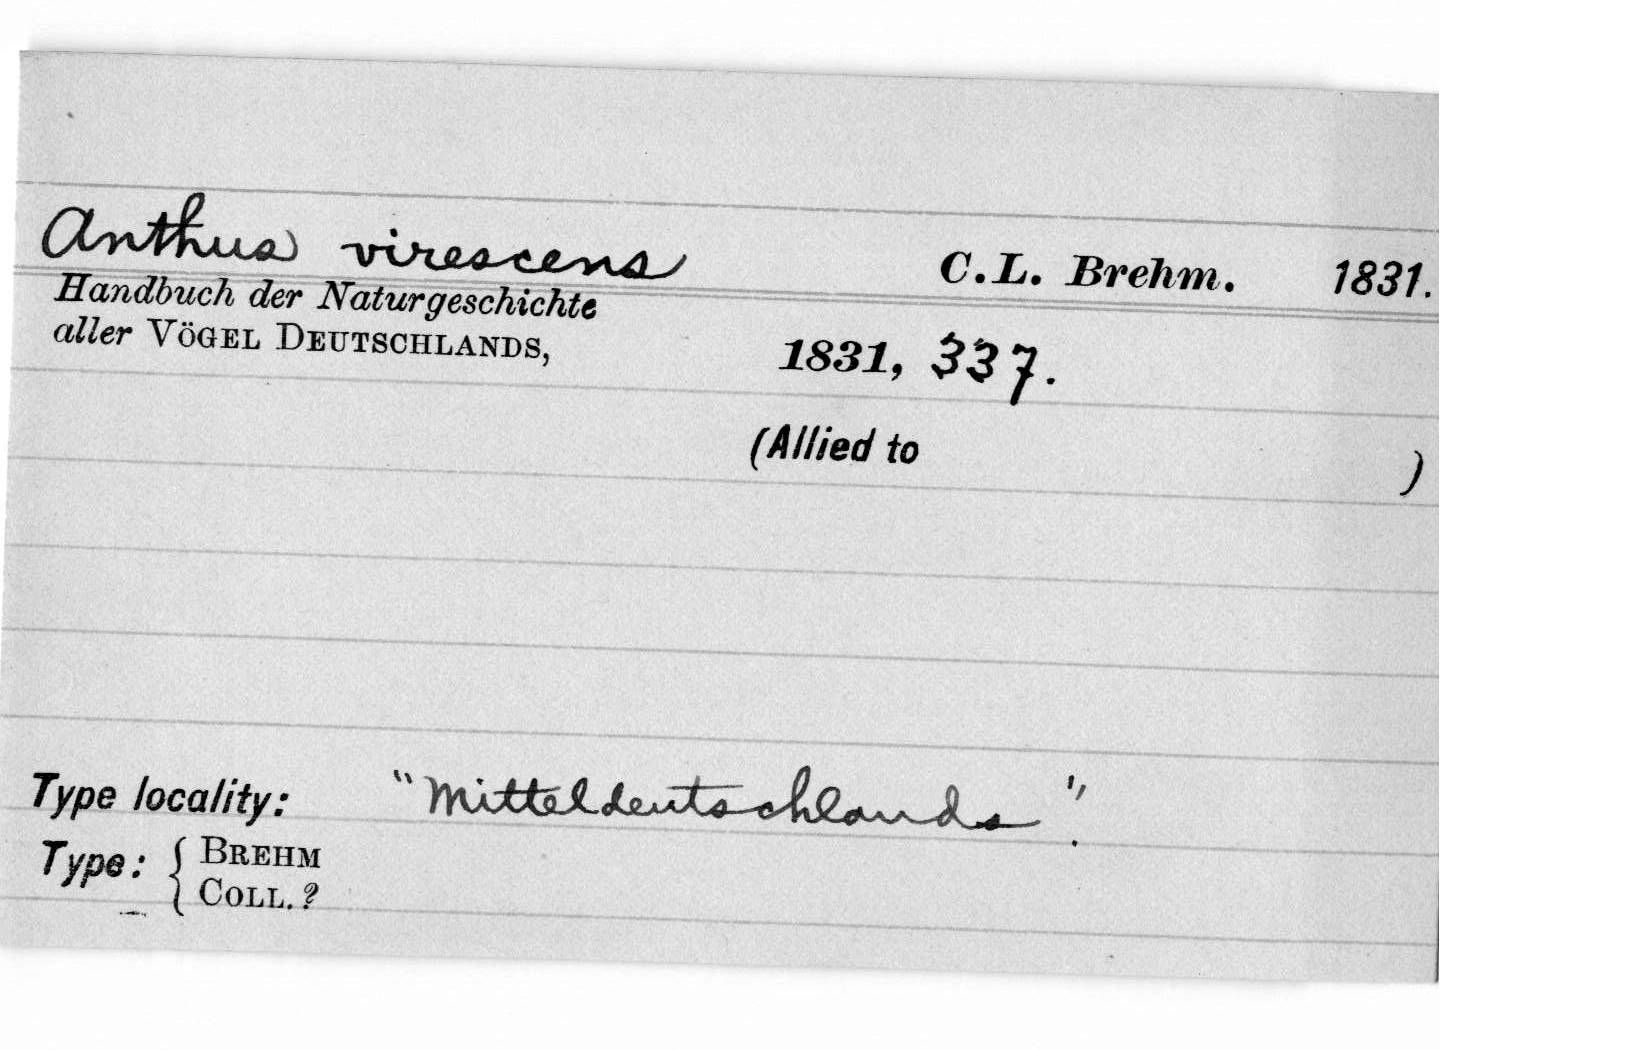 Anthus virescens C.L. Brehm. 1831.
Handbuch der Naturgeschichte
aller VÖGEL DEUTSCHLANDS, 1831, 337.
(Allied to )
Type locality: "Mitteldeutschlands".
Type: { BREHM
COLL. ?